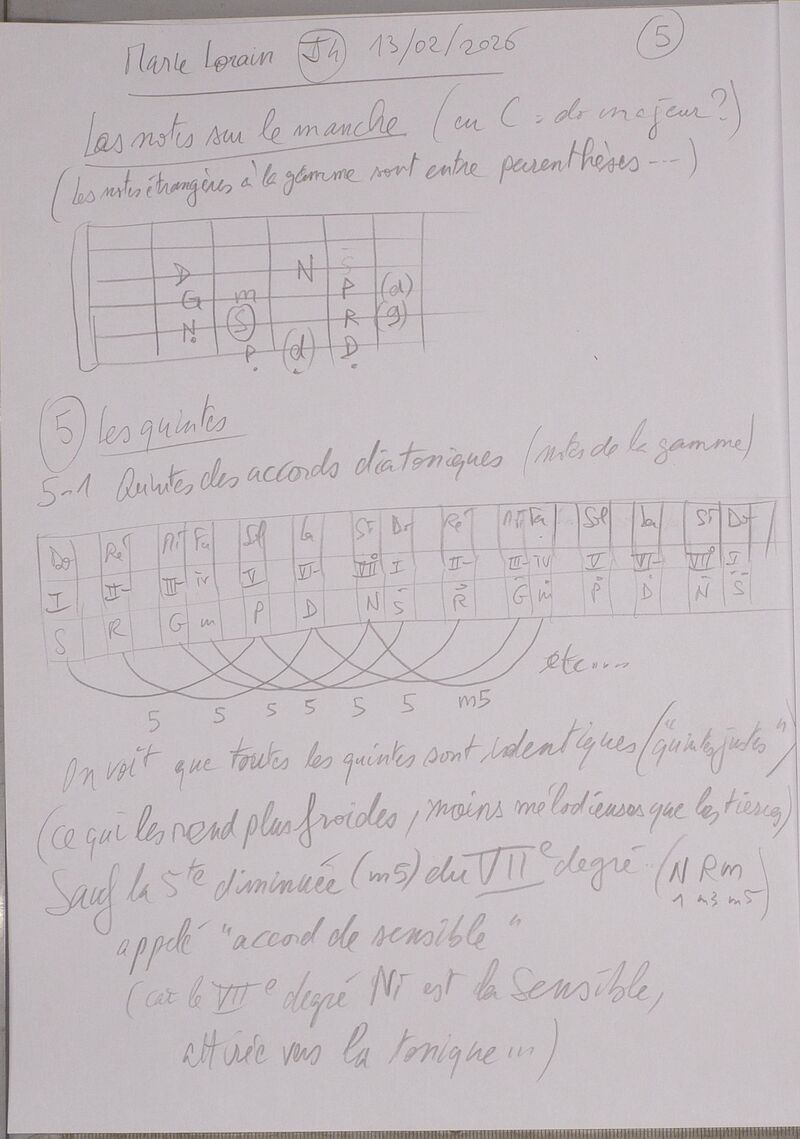 Marie Lorain 13/02/2026 5
Les notes sur le manche (en C = do majeur?)
(les notes étrangères à la gamme sont entre parenthèses ...)
D N S
G m P (d)
N S R (g)
P (d) D
5 Les quintes
5-1 Quintes des accords diatoniques (notes de la gamme)
Do Ré Mi Fa Sol La Si Do Ré Mi Fa Sol La Si Do
I II- III- iv V VI- VII° I II- III- iv V VI- VII° I
S R G m P D N S R G m P D N S
etc....
5 5 5 5 5 5 m5
On voit que toutes les quintes sont identiques ("quintes justes")
(ce qui les rend plus froides, moins mélodieuses que les tierces)
Sauf la 5te diminuée (m5) du VIIe degré (N R m
1 m3 m5)
appelé "accord de sensible"
(car le VIIe degré Ni est la sensible,
attirée vers la tonique ...)